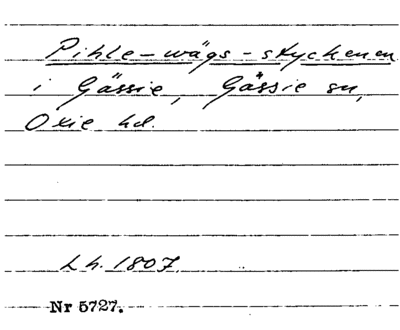 Pihle-wägs-styckenen
i Gässie, Gässie sn,
Oxie hd.
Lh. 1807.
Nr 5727.